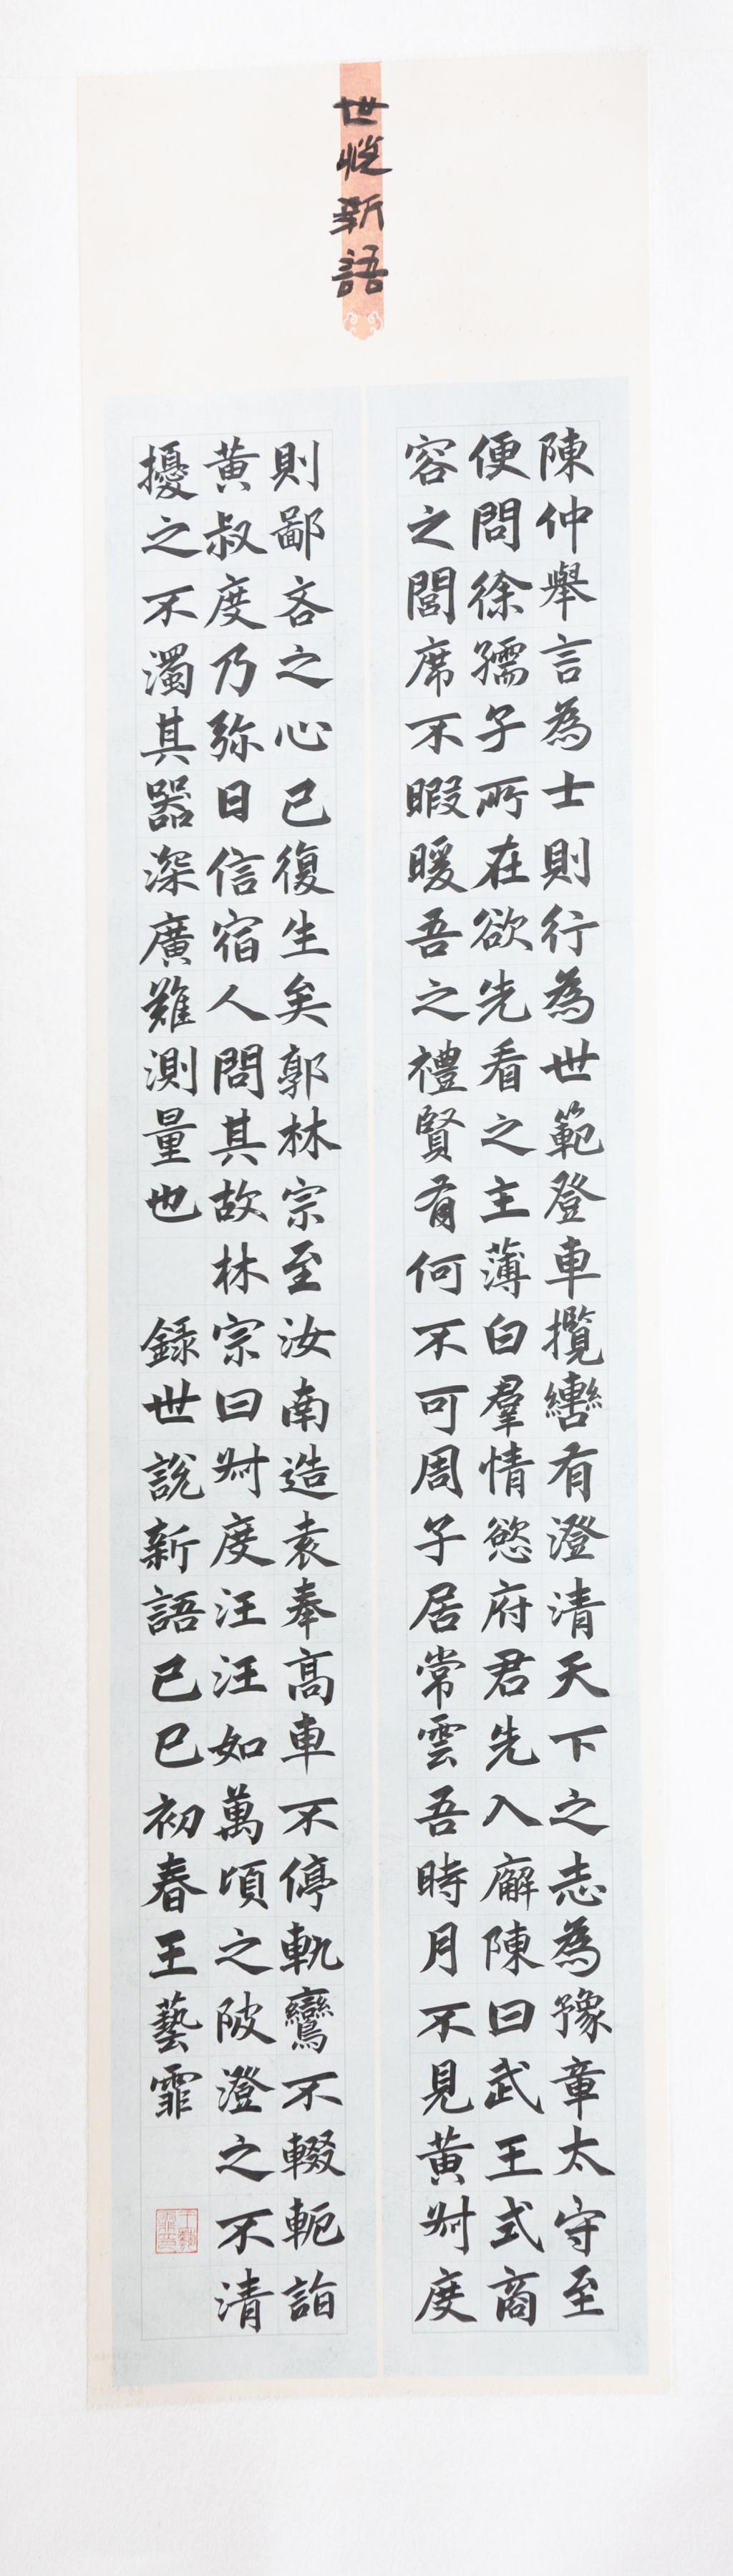 世說新語
陳仲舉言為士則行為世範登車攬轡有澄清天下之志為豫章太守至
便問徐孺子所在欲先看之主薄白羣情慾府君先入廨陳曰武王式商
容之閭席不暇暖吾之禮賢有何不可周子居常雲吾時月不見黃叔度
則鄙吝之心已復生矣郭林宗至汝南造袁奉高車不停軌鸞不輟軛詣
黃叔度乃弥日信宿人問其故林宗曰叔度汪汪如萬頃之陂澄之不清
擾之不濁其器深廣難測量也 録世說新語己巳初春王藝霏